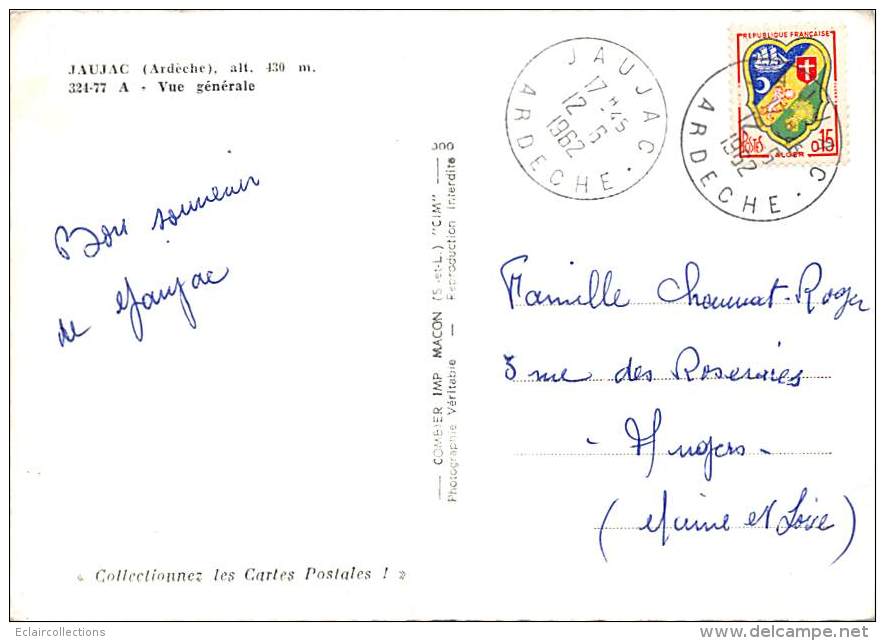 JAUJAC (Ardèche), alt. 430 m.
324-77 A - Vue générale
Bon souvenir
de Jaujac
COMBIER IMP MACON (S.-et-L.) "CIM"
Photographie Véritable — Reproduction Interdite
JAUJAC
17 H 45
12 - 5
1962
ARDECHE
REPUBLIQUE FRANÇAISE
POSTES
0,15
ALGER
1962
ARDECHE
Famille Chauvat-Roger
3 rue des Roseraies
- Angers -
(Maine et Loire)
« Collectionnez les Cartes Postales ! »
Eclaircollections
delcampe.net